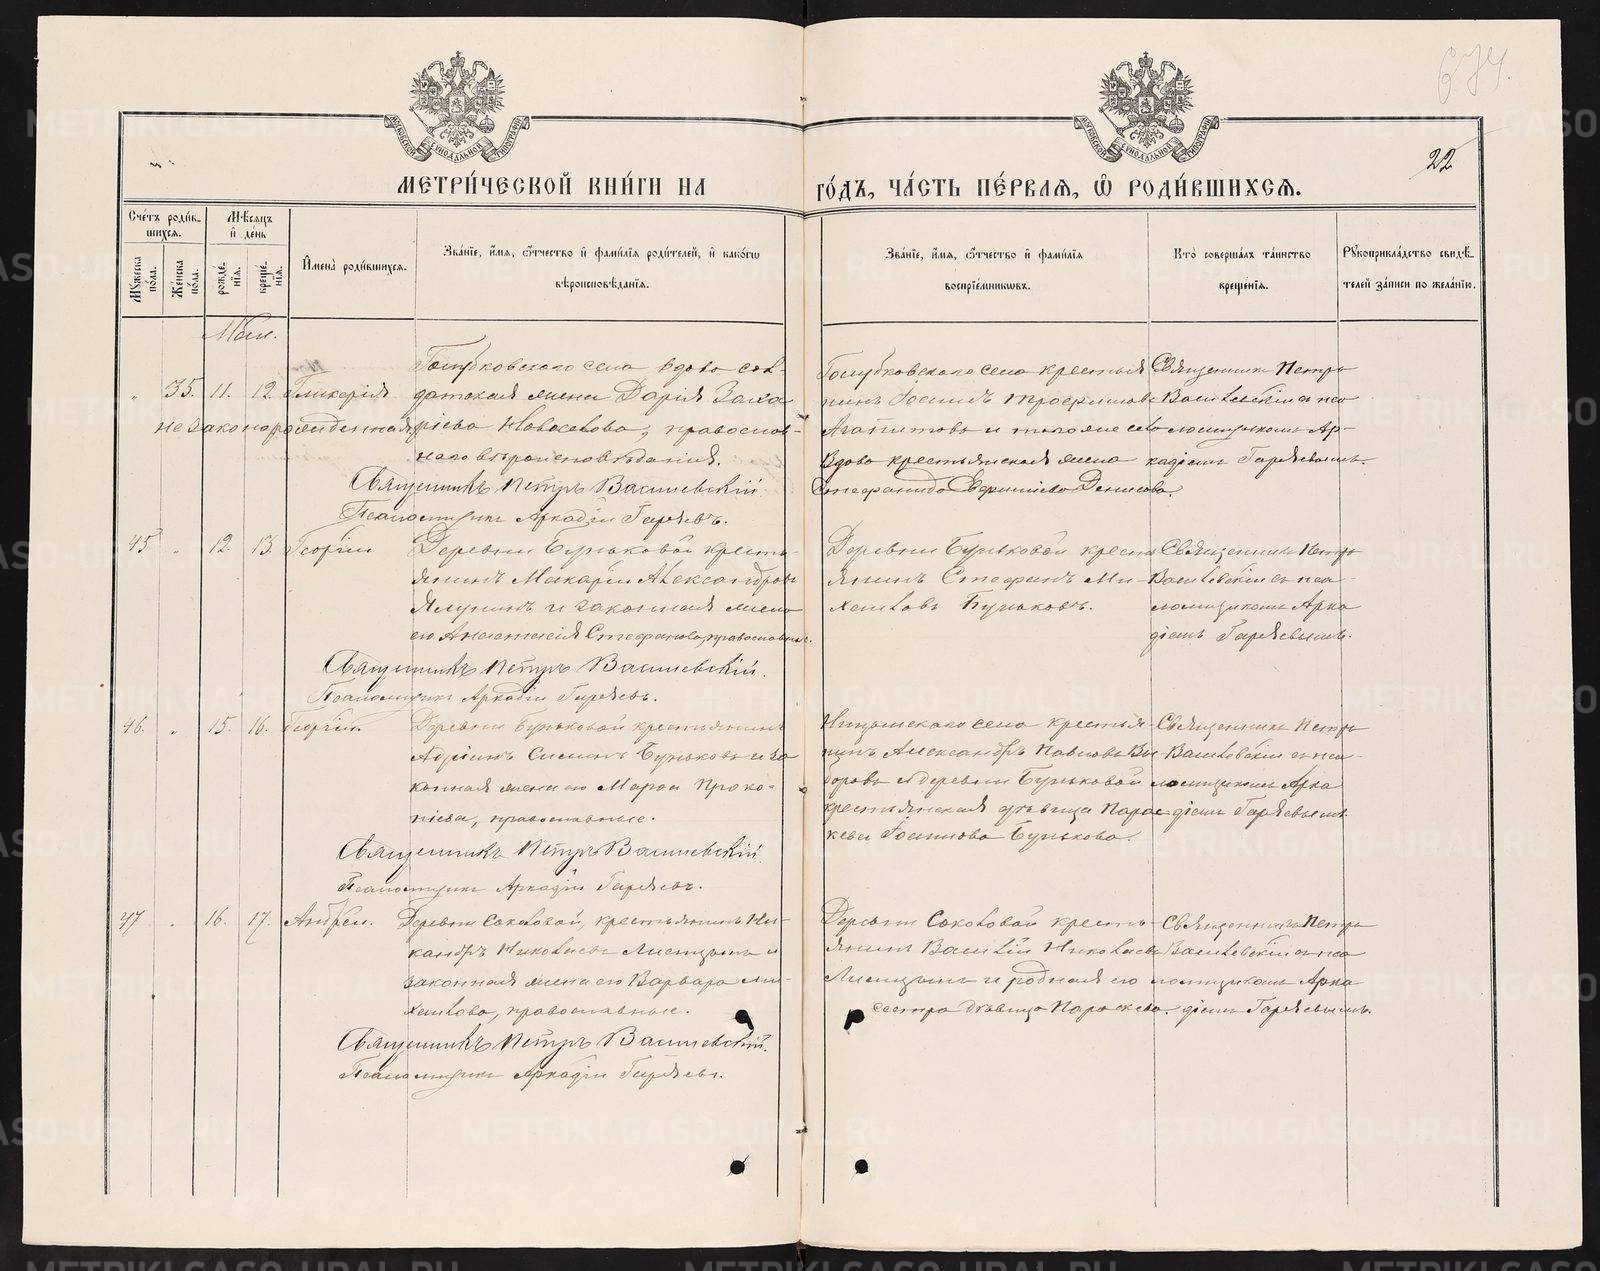 674.
22
МОСКОВСКОЙ СѴНОДАЛЬНОЙ ТИПОГРАФІИ
МОСКОВСКОЙ СѴНОДАЛЬНОЙ ТИПОГРАФІИ
МЕТРИ́ЧЕСКОЙ КНИ́ГИ НА
ГО́ДЪ, ЧА́СТЬ ПЕ́РВАѦ, Ѡ҆ РОДИ́ВШИХСѦ.
Сче́тъ роди́в-
шихсѧ.
Мѣ́сѧцъ
и҆ де́нь
Мꙋ́жеска
по́ла.
Же́нска
по́ла.
рожде́-
нїѧ.
креще́-
нїѧ.
И҆мена̀ роди́вшихсѧ.
Зва́нїе, и҆́мѧ, ѻ҆́тчество и҆ фами́лїѧ роди́телей, и҆ како́гѡ
вѣроисповѣ́данїѧ.
Зва́нїе, и҆́мѧ, ѻ҆́тчество и҆ фами́лїѧ
воспрїе́мникѡвъ.
Кто̀ соверша́лъ та́инство
креще́нїѧ.
Рꙋкоприкла́дство свидѣ́-
телей за́писи по жела́нїю.
Маи.
" 35. 11. 12. Гликерія
незаконорожденная
Голубковскаго села вдова сол-
датская жена Дарія Заха
ріева Новоселова, православ-
наго вѣроисповѣданія.
Священникъ Петръ Василевскій
Псаломщикъ Аркадій Гаряевъ.
Голубковскаго села крестья
нинъ Іоаннъ Трофимовъ
Агапитовъ и того же села
вдова крестьянская жена
Стефанида Денисова.
Священникъ Петръ
Василевскій съ пса
ломщикомъ Ар-
кадіемъ Гаряевымъ.
45 " 12. 13. Георгій
Деревни Буньковой кресть-
янинъ Макарій Александровъ
Ялунинъ и законная жена
его Анастасія Стефанова, православные.
Священникъ Петръ Василевскій.
Псаломщикъ Аркадій Гаряевъ.
Деревни Буньковой кресть
янинъ Стефанъ Ми-
хаиловъ Буньковъ.
Священникъ Петръ
Василевскій съ пса-
ломщикомъ Арка
діемъ Гаряевымъ.
46. " 15. 16. Георгій.
Деревни Буньковой крестьянинъ
Адріанъ Силинъ Буньковъ и за
конная жена его Марѳа Проко-
піева, православные.
Священникъ Петръ Василевскій.
Псаломщикъ Аркадій Гаряевъ.
Ницинскаго села крестья-
нинъ Александръ Павловъ Вы
боровъ и деревни Буньковой
крестьянская дѣвица Парас-
кева Іоаннова Бунькова.
Священникъ Петръ
Василевскій съ пса-
ломщикомъ Арка
діемъ Гаряевымъ.
47 " 16. 17. Андрей.
Деревни Соколовой, крестьянинъ Ни-
кандръ Николаевъ Лисицынъ и
законная жена его Варвара Ми-
хаилова, православные.
Священникъ Петръ Василевскій.
Псаломщикъ Аркадій Гаряевъ.
Деревни Соколовой кресть-
янинъ Василій Николаевъ
Лисицынъ и родная его
сестра дѣвица Параскева.
Священникъ Петръ
Василевскій съ пса
ломщикомъ Арка
діемъ Гаряевымъ.
METRIKI.GASO-URAL.RU